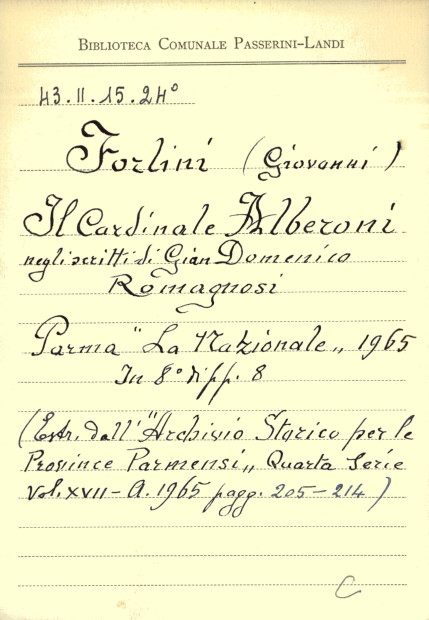 BIBLIOTECA COMUNALE PASSERINI-LANDI
43.II.15.24°
Forlini (Giovanni)
Il Cardinale Alberoni
negli scritti di Gian Domenico
Romagnosi
Parma "La Nazionale„ 1965
In 8° di pp. 8
(Estr. dall'"Archivio Storico per le
Province Parmensi„ Quarta Serie
Vol. XVII - A. 1965 pagg. 205-214)
C